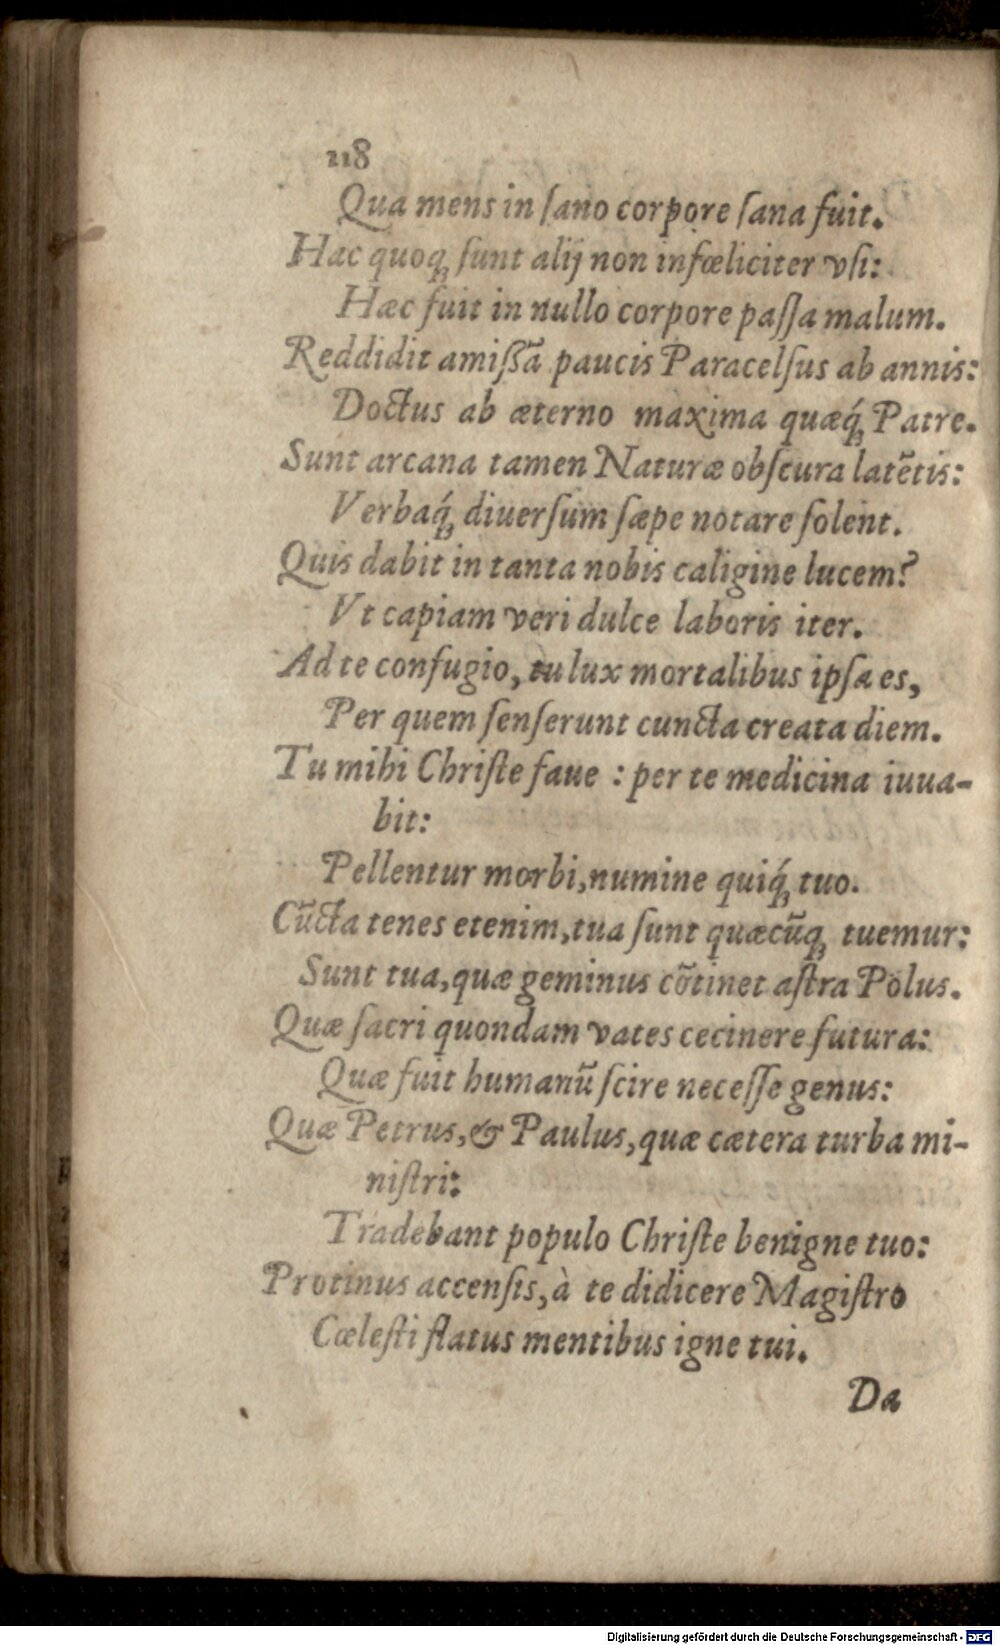 118
Qua mens in ſano corpore ſana fuit.
Hac quoq; ſunt alij non infœliciter vſi:
Hæc fuit in nullo corpore paſſa malum.
Reddidit amiſsã paucis Paracelſus ab annis:
Doctus ab æterno maxima quæq́; Patre.
Sunt arcana tamen Naturæ obſcura latẽtis:
Verbaq́; diuerſum ſæpe notare ſolent.
Quis dabit in tanta nobis caligine lucem?
Vt capiam veri dulce laboris iter.
Ad te confugio, tu lux mortalibus ipſa es,
Per quem ſenſerunt cuncta creata diem.
Tu mihi Chriſte faue : per te medicina iuua-
bit:
Pellentur morbi, numine quiq́; tuo.
Cũcta tenes etenim, tua ſunt quæcũq; tuemur:
Sunt tua, quæ geminus cõtinet aſtra Polus.
Quæ ſacri quondam vates cecinere futura:
Quæ fuit humanũ ſcire neceſſe genus:
Quæ Petrus, & Paulus, quæ cætera turba mi-
niſtri:
Tradebant populo Chriſte benigne tuo:
Protinus accenſis, à te didicere Magiſtro
Cæleſti flatus mentibus igne tui.
Da
Digitalisierung gefördert durch die Deutsche Forschungsgemeinschaft - DFG